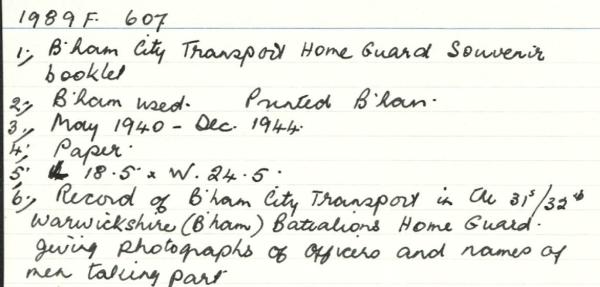 1989 F. 607
1; B'ham City Transport Home Guard Souvenir
booklet
2; B'ham used. Printed B'ham.
3; May 1940 - Dec. 1944.
4; Paper.
5; L 18.5 x W. 24.5.
6; Record of B'ham City Transport in the 31s/32nd
Warwickshire (B'ham) Battalions Home Guard.
giving photographs of officers and names of
men taking part